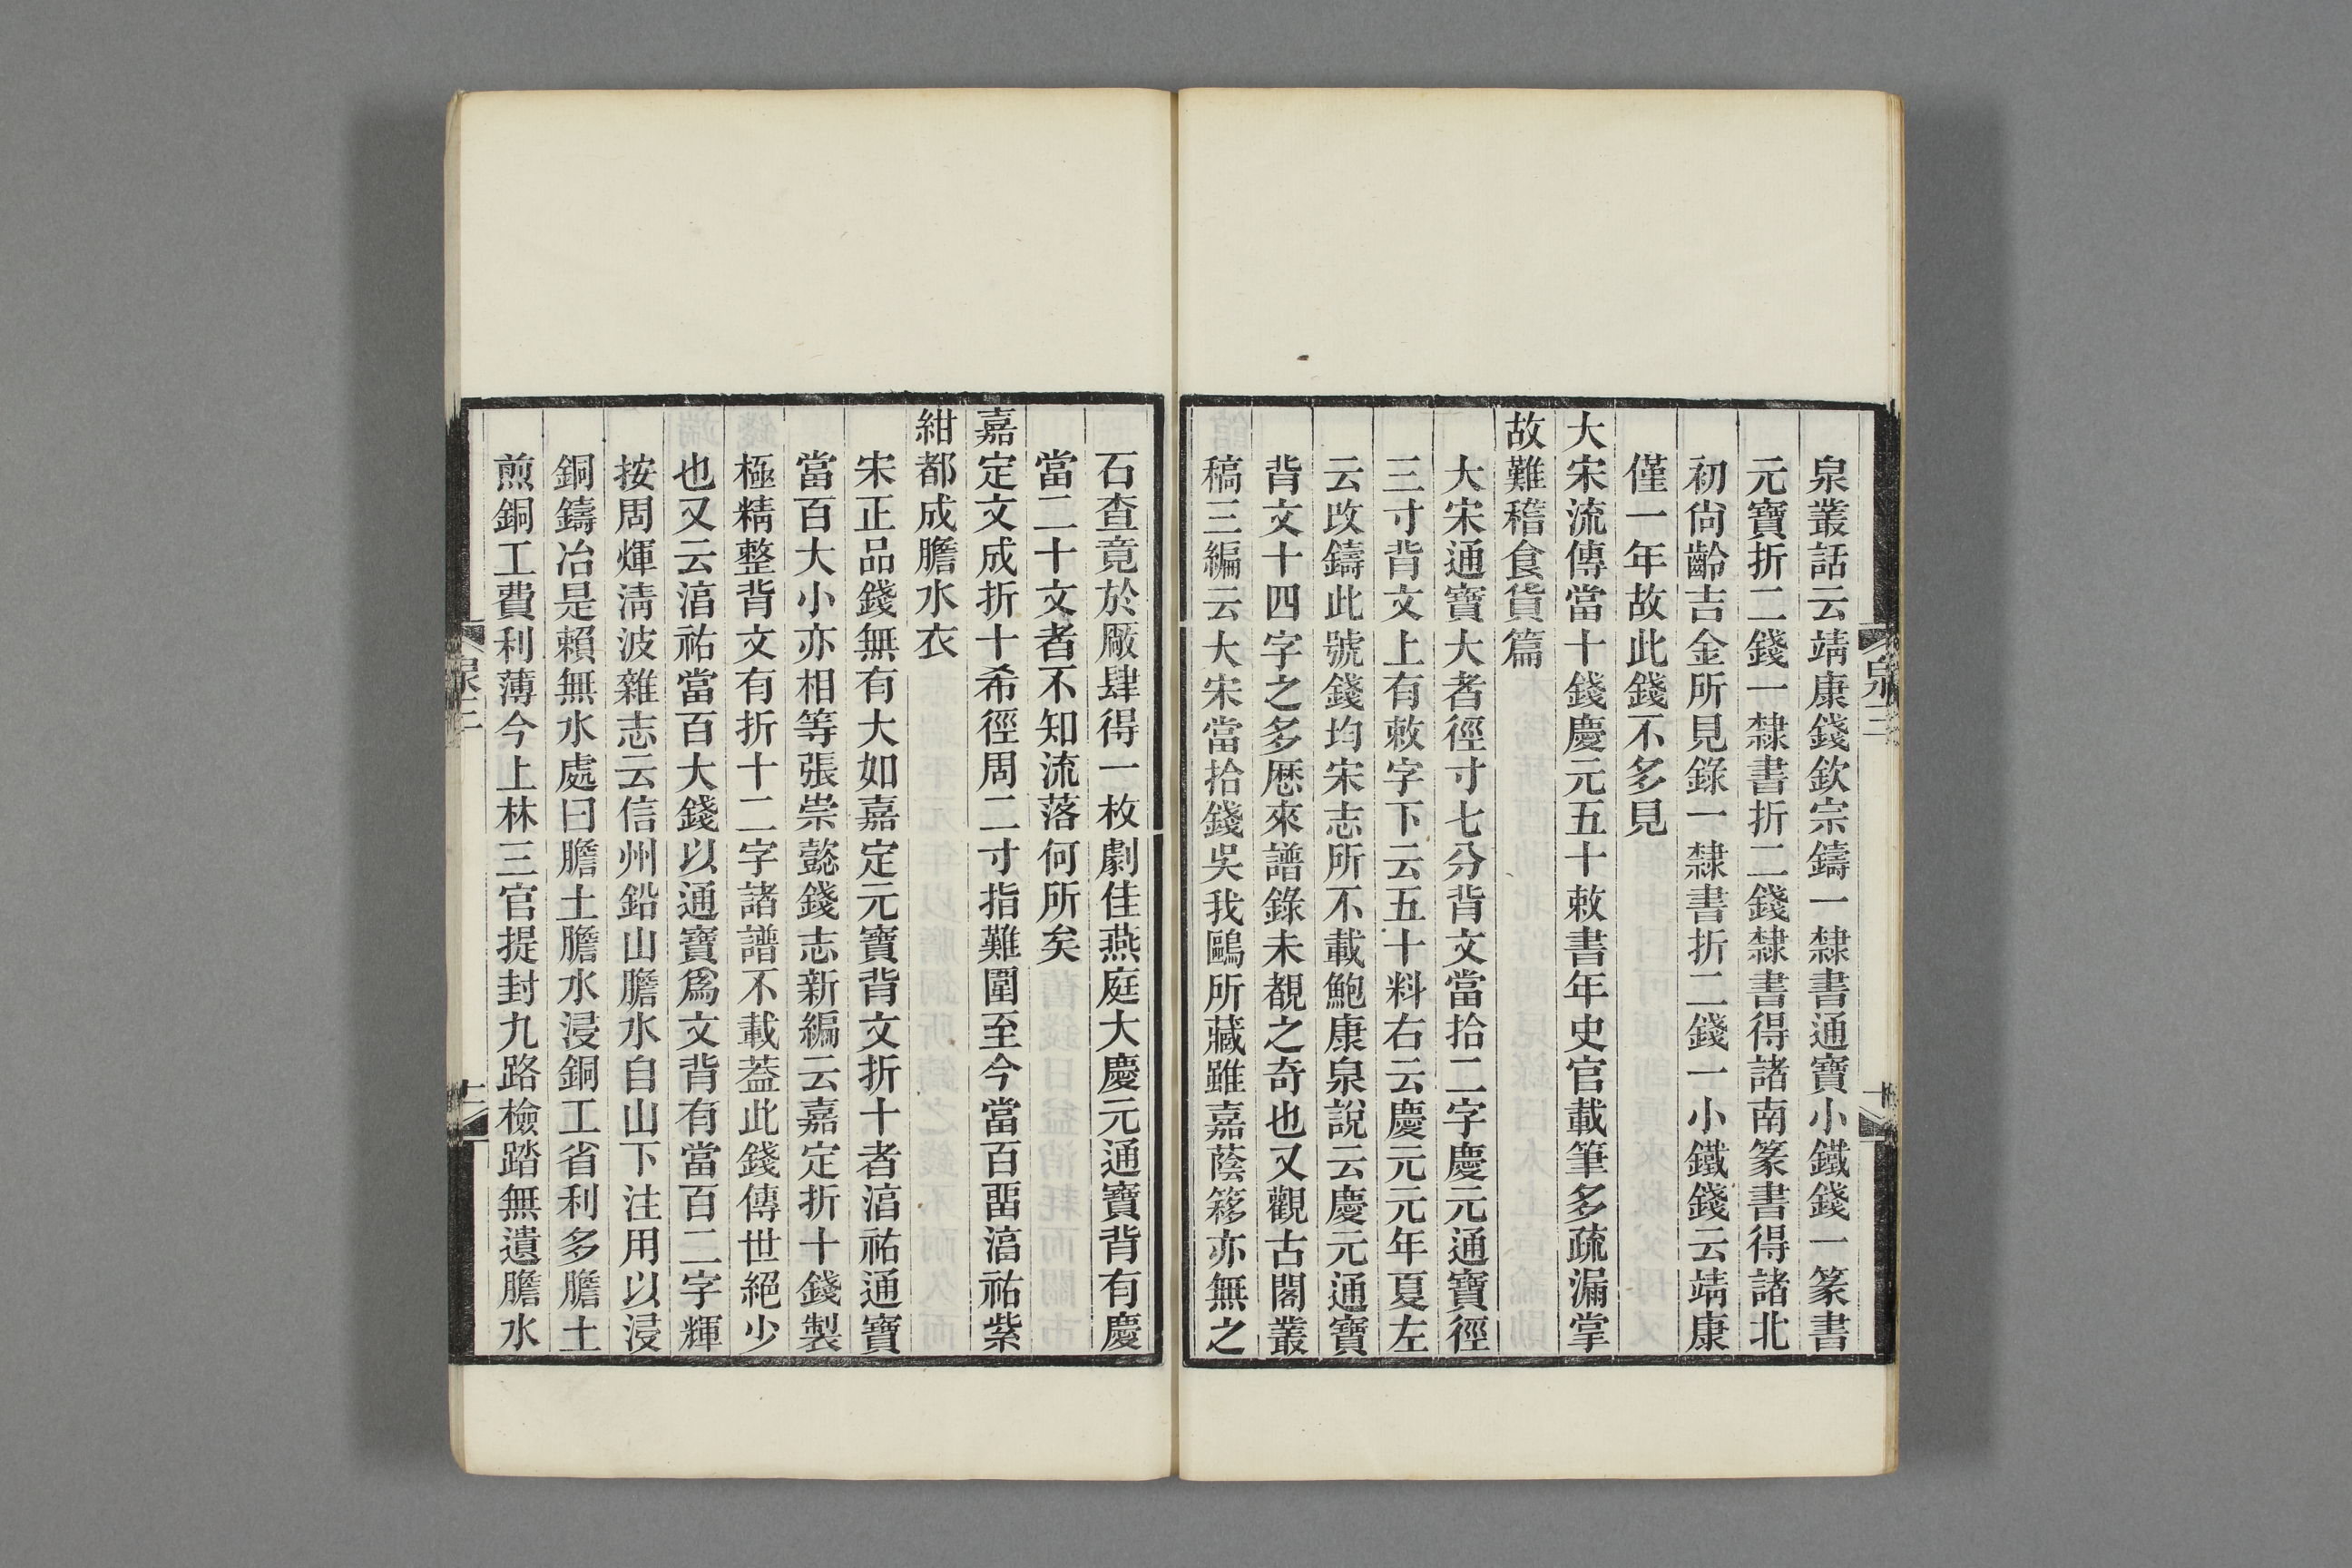 泉叢話云靖康錢欽宗鑄一隸書通寶小鐵錢一篆書
元寶折二錢一隸書折二錢隸書得諸南篆書得諸北
初尙齡吉金所見錄一隸書折二錢一小鐵錢云靖康
僅一年故此錢不多見
大宋流傳當十錢慶元五十敕書年史官載筆多疏漏掌
故難稽食貨篇
大宋通寶大者徑寸七分背文當拾二字慶元通寶徑
三寸背文上有敕字下云五十料右云慶元元年夏左
云改鑄此號錢均宋志所不載鮑康泉說云慶元通寶
背文十四字之多厯來譜錄未覩之奇也又觀古閣叢
稿三編云大宋當拾錢吳我鷗所藏雖嘉蔭簃亦無之
石查竟於厰肆得一枚劇佳燕庭大慶元通寶背有慶
當二十文者不知流落何所矣
嘉定文成折十希徑周二寸指難圍至今當百畱湻祐紫
紺都成膽水衣
宋正品錢無有大如嘉定元寶背文折十者湻祐通寶
當百大小亦相等張崇懿錢志新編云嘉定折十錢製
極精整背文有折十二字諸譜不載葢此錢傳世絕少
也又云湻祐當百大錢以通寶爲文背有當百二字輝
按周煇淸波雜志云信州鉛山膽水自山下注用以浸
銅鑄冶是賴無水處曰膽土膽水浸銅工省利多膽土
煎銅工費利薄今上林三官提封九路檢踏無遺膽水